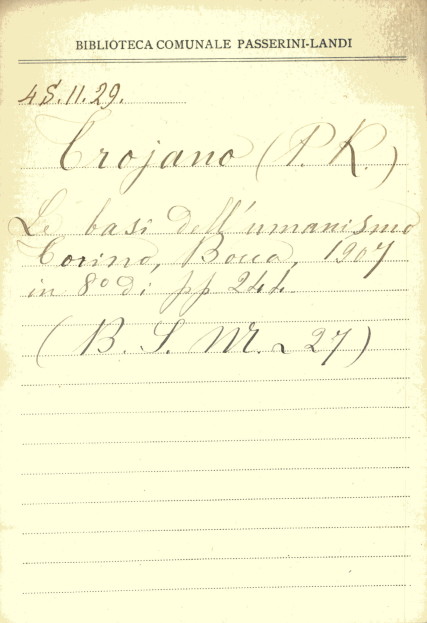 BIBLIOTECA COMUNALE PASSERINI-LANDI
4S.11.29.
Trojano (P. R.)
Le basi dell'umanismo
Torino, Bocca, 1907
in 8º di pp 244.
(B. S. M. 27)